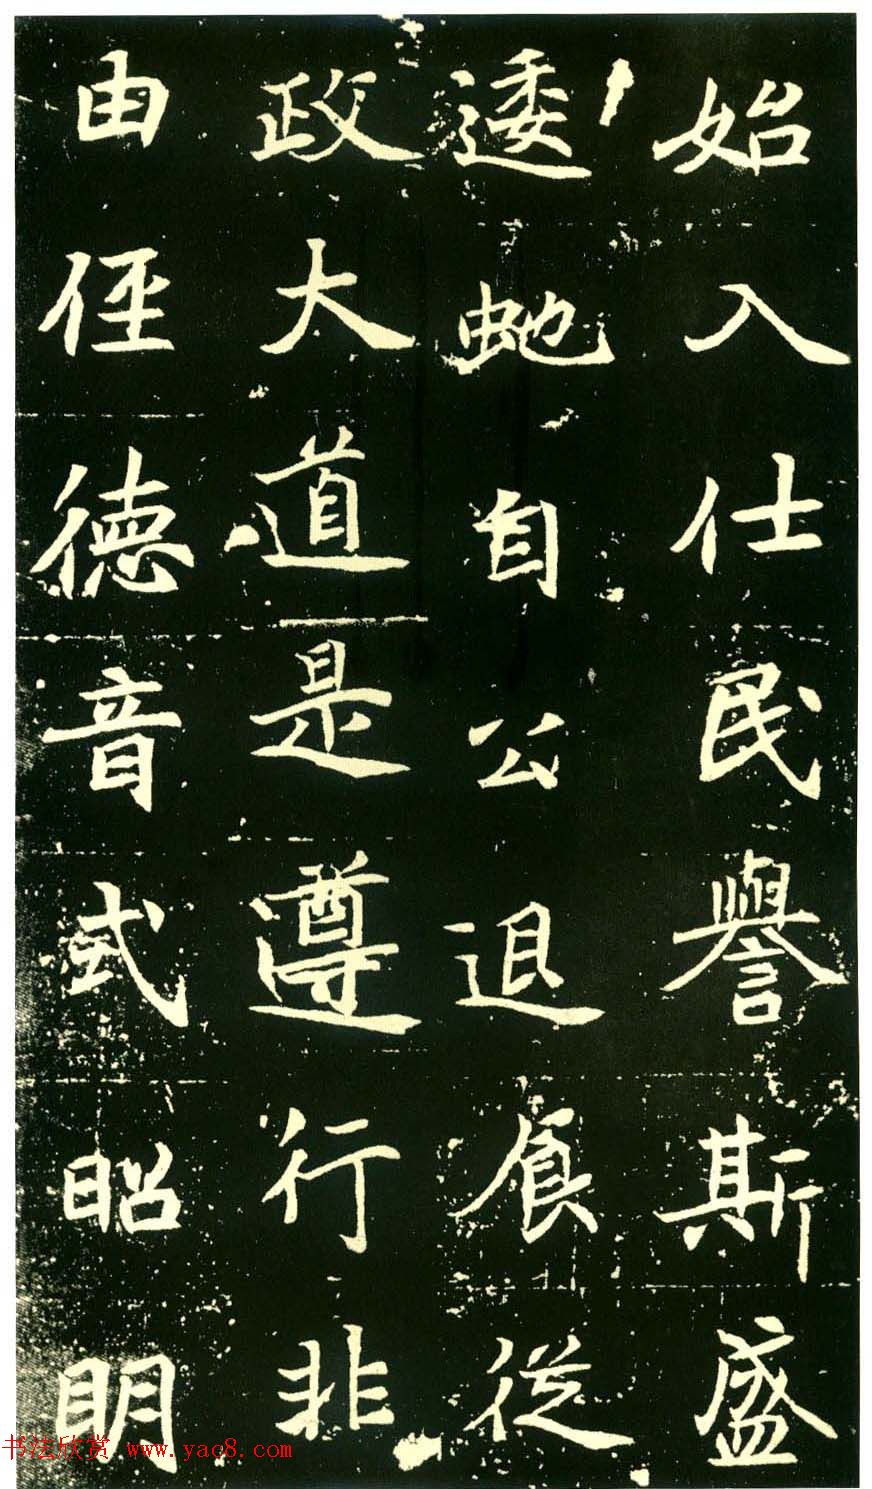 始入仕民譽斯盛
逶虵自公退食從
政大道是遵行非
由徑德音式昭明
书法欣赏 www.yac8.com